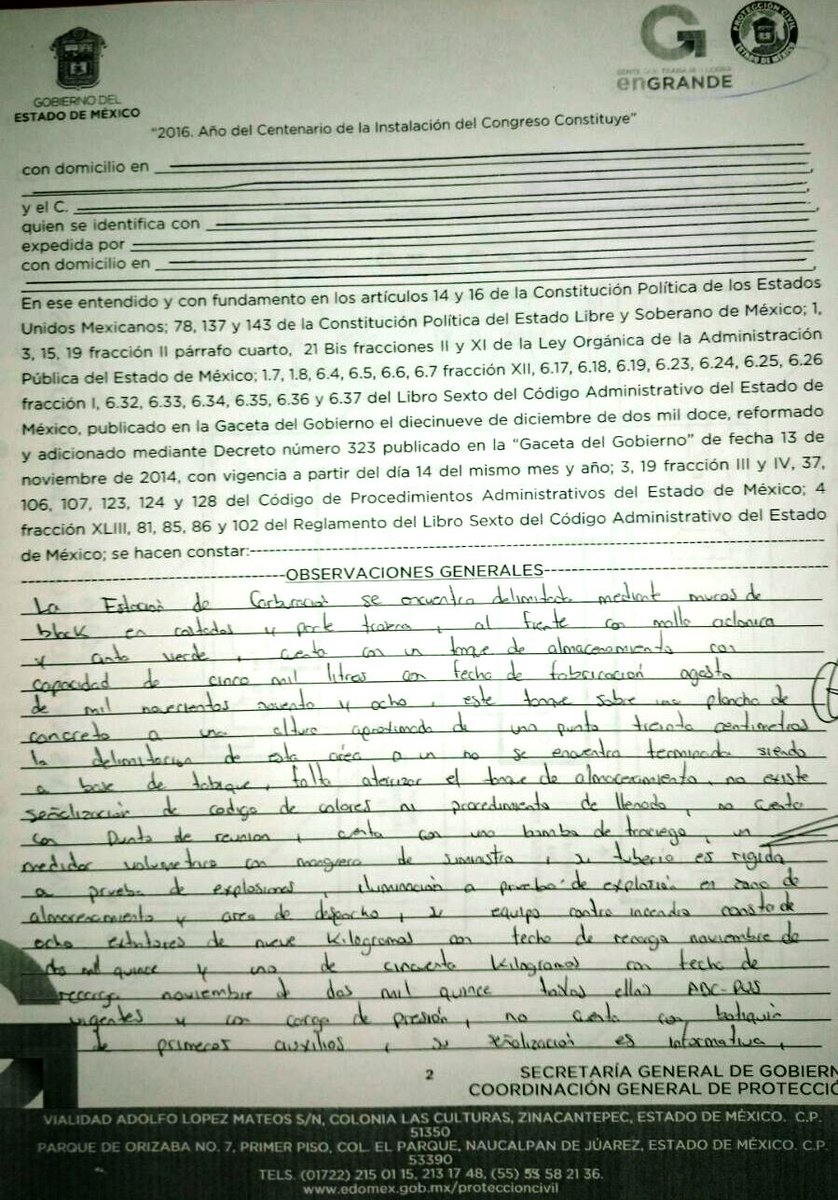 GOBIERNO DEL
ESTADO DE MÉXICO
enGRANDE
PROTECCIÓN CIVIL
ESTADO DE MÉXICO
"2016. Año del Centenario de la Instalación del Congreso Constituye"
con domicilio en
y el C.
quien se identifica con
expedida por
con domicilio en
En ese entendido y con fundamento en los artículos 14 y 16 de la Constitución Política de los Estados
Unidos Mexicanos; 78, 137 y 143 de la Constitución Política del Estado Libre y Soberano de México; 1,
3, 15, 19 fracción II párrafo cuarto, 21 Bis fracciones II y XI de la Ley Orgánica de la Administración
Pública del Estado de México; 1.7, 1.8, 6.4, 6.5, 6.6, 6.7 fracción XII, 6.17, 6.18, 6.19, 6.23, 6.24, 6.25, 6.26
fracción I, 6.32, 6.33, 6.34, 6.35, 6.36 y 6.37 del Libro Sexto del Código Administrativo del Estado de
México, publicado en la Gaceta del Gobierno el diecinueve de diciembre de dos mil doce, reformado
y adicionado mediante Decreto número 323 publicado en la "Gaceta del Gobierno" de fecha 13 de
noviembre de 2014, con vigencia a partir del día 14 del mismo mes y año; 3, 19 fracción III y IV, 37,
106, 107, 123, 124 y 128 del Código de Procedimientos Administrativos del Estado de México; 4
fracción XLIII, 81, 85, 86 y 102 del Reglamento del Libro Sexto del Código Administrativo del Estado
de México; se hacen constar:
OBSERVACIONES GENERALES
La Estación de Carburación se encuentra delimitada mediante muros de
block en costados y parte trasera, al frente con malla ciclonica
y cinta verde, cuenta con un tanque de almacenamiento con
capacidad de cinco mil litros con fecha de fabricación agosto
de mil novecientos noventa y ocho, este tanque sobre una plancha de
concreto a una altura aproximada de uno punto treinta centimetros
la delimitación de esta área a un no se encuentra terminada siendo
a base de tabique, falta aterrizar el tanque de almacenamiento, no existe
señalización de codigo de colores ni procedimiento de llenado, no cuenta
con punto de reunion, cuenta con una bomba de trasiego, un
medidor volumetrico con manguera de suministro, su tuberia es rigida
a prueba de explosiones, iluminación a prueba de explosión en zona de
almacenamiento y area de despacho, su equipo contra incendio consta de
ocho extintores de nueve kilogramos con fecha de recarga noviembre de
dos mil quince y uno de cincuenta kilogramos con fecha de
recarga noviembre de dos mil quince todos ellos ABC-PQS
vigentes y con carga de presión, no cuenta con botiquin
de primeros auxilios, su señalización es informativa,
2
SECRETARÍA GENERAL DE GOBIERN
COORDINACIÓN GENERAL DE PROTECCIÓ
VIALIDAD ADOLFO LOPEZ MATEOS S/N, COLONIA LAS CULTURAS, ZINACANTEPEC, ESTADO DE MÉXICO. C.P.
51350
PARQUE DE ORIZABA NO. 7, PRIMER PISO, COL. EL PARQUE, NAUCALPAN DE JÚAREZ, ESTADO DE MÉXICO. C.P.
53390
TELS. (01722) 215 01 15, 213 17 48, (55) 53 58 21 36.
www.edomex.gob.mx/proteccioncivil